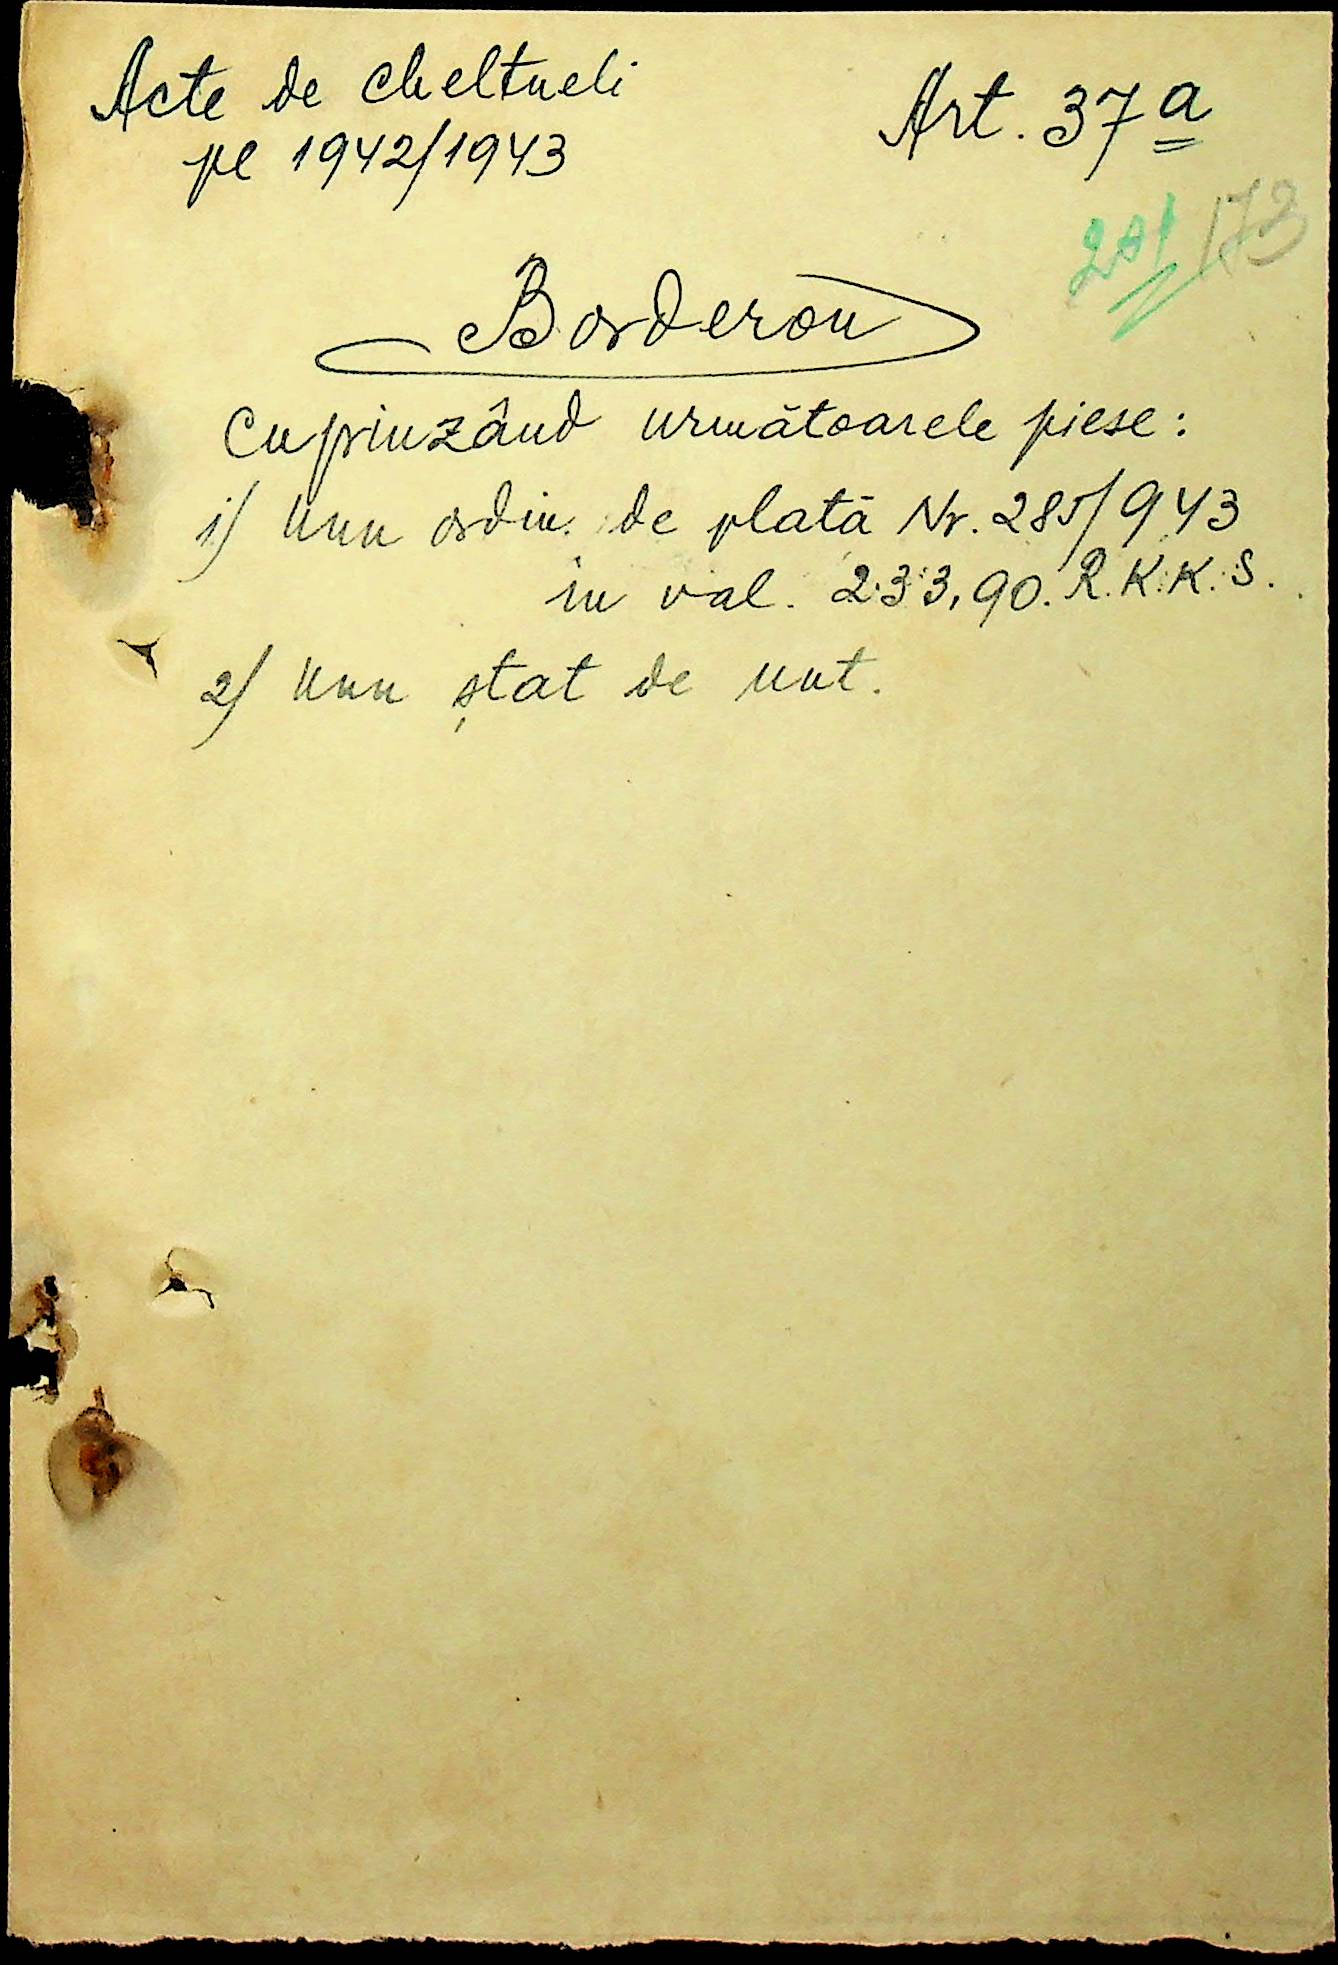 Acte de cheltueli
pe 1942/1943
Art. 37 a
201 173
Borderou
Cuprinzând următoarele piese:
1/ Unu ordin de plată Nr. 285/943
in val. 233,90. R.K.K.S.
2/ Unu ștat de unt.